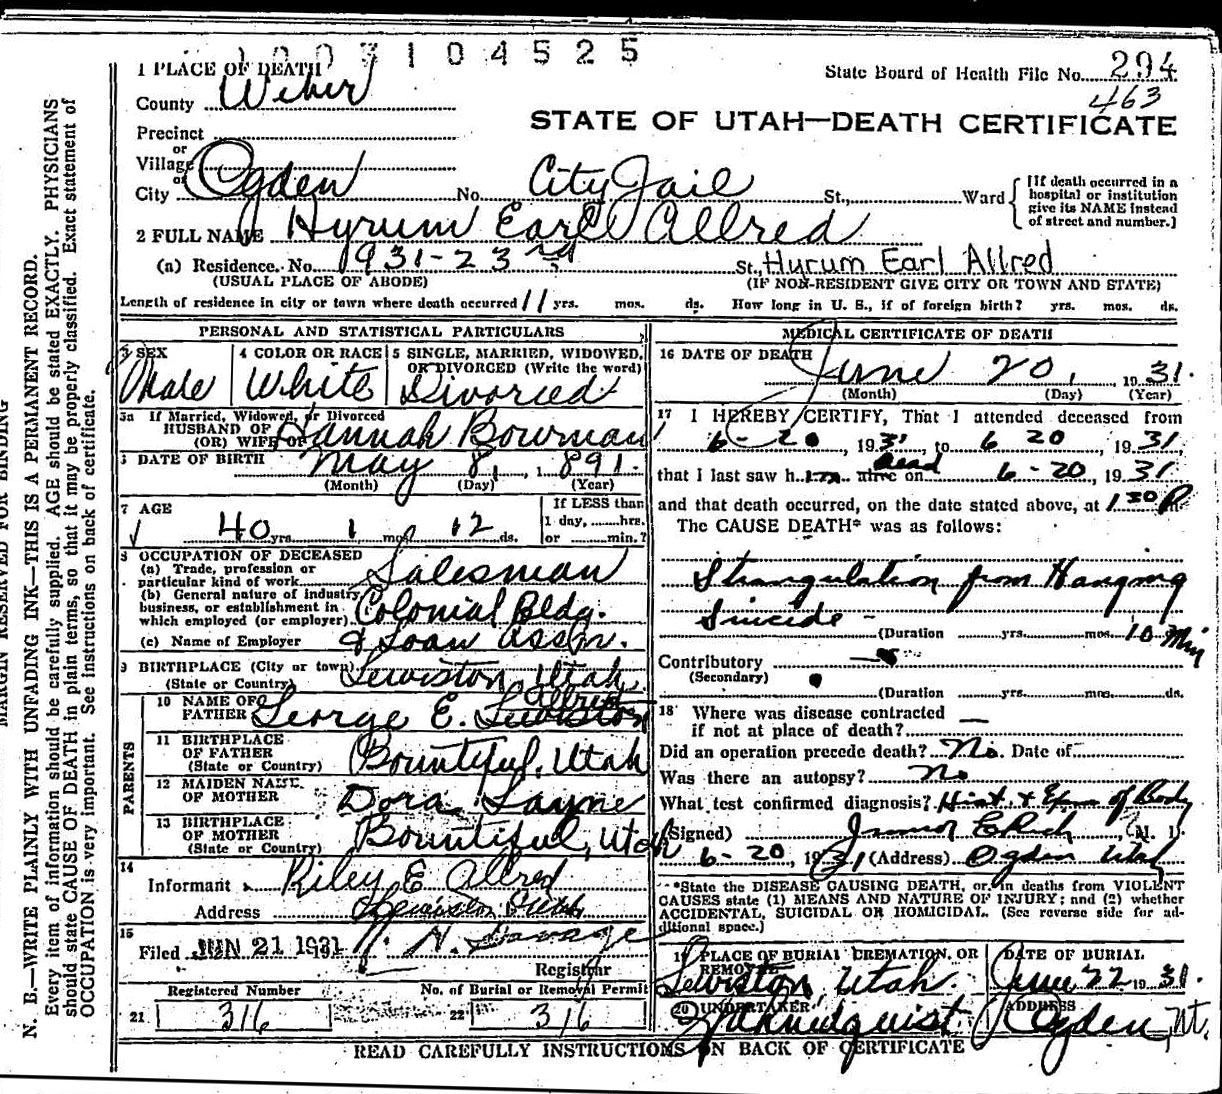 1003104525
1 PLACE OF DEATH
State Board of Health File No. 294
463
County Weber
STATE OF UTAH—DEATH CERTIFICATE
Precinct
or
Village
or
City Ogden No. City Jail St., Ward
[If death occurred in a hospital or institution give its NAME instead of street and number.]
2 FULL NAME Hyrum Earl Allred
(a) Residence. No. 931-23rd St., Hyrum Earl Allred
(USUAL PLACE OF ABODE) (IF NON-RESIDENT GIVE CITY OR TOWN AND STATE)
Length of residence in city or town where death occurred 11 yrs. mos. ds. How long in U. S., if of foreign birth? yrs. mos. ds.
PERSONAL AND STATISTICAL PARTICULARS
3 SEX Male
4 COLOR OR RACE White
5 SINGLE, MARRIED, WIDOWED, OR DIVORCED (Write the word) Divorced
5a If Married, Widowed, or Divorced
HUSBAND OF
(OR) WIFE OF Hannah Bowman
DATE OF BIRTH May 8, 1891.
(Month) (Day) (Year)
7 AGE 40 yrs. 1 mos. 12 ds.
If LESS than
1 day, hrs.
or min.?
8 OCCUPATION OF DECEASED
(a) Trade, profession or
particular kind of work Salesman
(b) General nature of industry,
business, or establishment in
which employed (or employer) Colonial Bldg.
(c) Name of Employer & Loan Assn.
9 BIRTHPLACE (City or town)
(State or Country) Lewiston, Utah
PARENTS
10 NAME OF
FATHER George E. Lewiston Allred
11 BIRTHPLACE
OF FATHER
(State or Country) Bountiful, Utah
12 MAIDEN NAME
OF MOTHER Dora Layne
13 BIRTHPLACE
OF MOTHER
(State or Country) Bountiful, Utah
14
Informant Riley E Allred
Address Lewiston Utah
15
Filed JUN 21 1931 N. Savage
Registrar
Registered Number No. of Burial or Removal Permit
21 316 22 316
MEDICAL CERTIFICATE OF DEATH
16 DATE OF DEATH June 20, 1931.
(Month) (Day) (Year)
17 I HEREBY CERTIFY, That I attended deceased from
6-20, 1931, to 6 20, 1931,
that I last saw him alive dead on 6-20, 1931
and that death occurred, on the date stated above, at 1 30 P
The CAUSE DEATH* was as follows:
Strangulation from Hanging
Suicide -
(Duration yrs. mos. 10 Min
Contributory
(Secondary)
(Duration yrs. mos. ds.
18 Where was disease contracted
if not at place of death? —
Did an operation precede death? No. Date of
Was there an autopsy? No
What test confirmed diagnosis? Hist & Exam of Body
(Signed) Junior E Rich, M. D.
6-20, 1931 (Address) Ogden Utah
*State the DISEASE CAUSING DEATH, or, in deaths from VIOLENT
CAUSES state (1) MEANS AND NATURE OF INJURY; and (2) whether
ACCIDENTAL, SUICIDAL OR HOMICIDAL. (See reverse side for ad-
ditional space.)
19 PLACE OF BURIAL CREMATION, OR
REMOVAL Lewiston, Utah.
DATE OF BURIAL
June 22 1931.
20 UNDERTAKER Lindquist
ADDRESS
Ogden, Ut.
READ CAREFULLY INSTRUCTIONS ON BACK OF CERTIFICATE
MARGIN RESERVED FOR BINDING
N. B.—WRITE PLAINLY WITH UNFADING INK—THIS IS A PERMANENT RECORD.
Every item of information should be carefully supplied. AGE should be stated EXACTLY. PHYSICIANS
should state CAUSE OF DEATH in plain terms, so that it may be properly classified. Exact statement of
OCCUPATION is very important. See instructions on back of certificate.